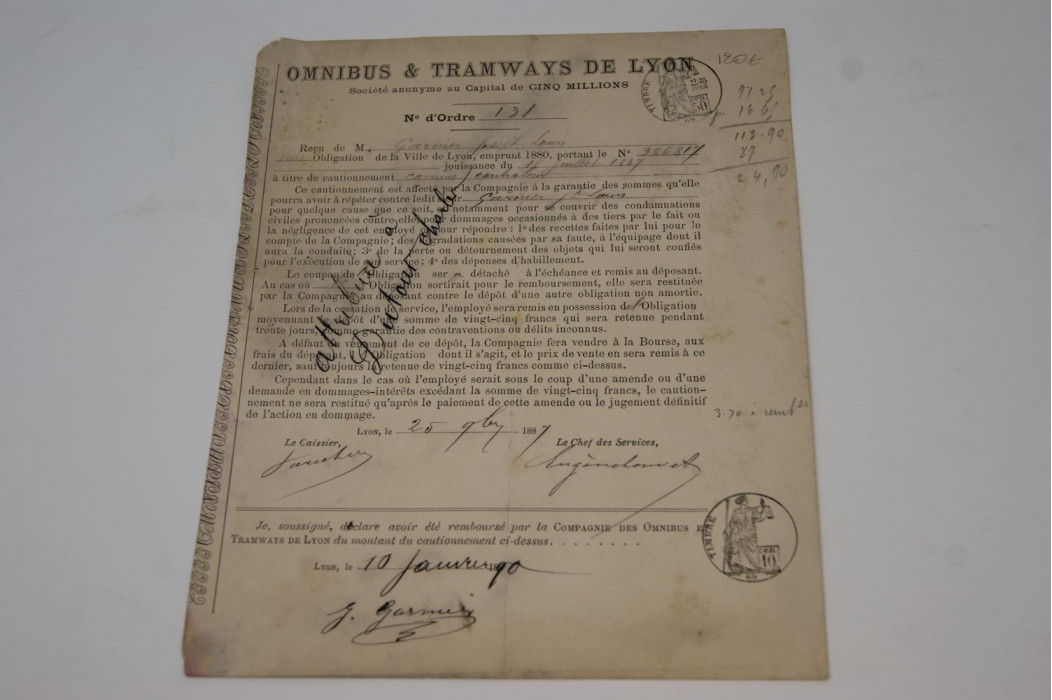 OMNIBUS & TRAMWAYS DE LYON
Société anonyme au Capital de CINQ MILLIONS
120 F
TIMBRE
97.25
16.65
113.90
N° d'Ordre 131
Reçu de M. Garnier Joseph Louis
une Obligation de la Ville de Lyon, emprunt 1880, portant le N°
jouissance du juillet 1887
à titre de cautionnement comme
Ce cautionnement est affecté par la Compagnie à la garantie des sommes qu'elle
pourra avoir à répéter contre ledit Garnier Jh Louis
pour quelque cause que ce soit, notamment pour se couvrir des condamnations
civiles prononcées contre elle pour dommages occasionnés à des tiers par le fait ou
la négligence de cet employé et pour répondre : 1° des recettes faites par lui pour le
compte de la Compagnie; des dégradations causées par sa faute, à l'équipage dont il
aura la conduite; 3° de la perte ou détournement des objets qui lui seront confiés
pour l'exécution de son service; 4° des dépenses d'habillement.
Le coupon de Obligation sera détaché à l'échéance et remis au déposant.
Au cas où Obligation sortirait pour le remboursement, elle sera restituée
par la Compagnie au déposant contre le dépôt d'une autre obligation non amortie.
Lors de la cessation de service, l'employé sera remis en possession de l'Obligation
moyennant le dépôt d'une somme de vingt-cinq francs qui sera retenue pendant
trente jours, comme garantie des contraventions ou délits inconnus.
A défaut du versement de ce dépôt, la Compagnie fera vendre à la Bourse, aux
frais du déposant, l'Obligation dont il s'agit, et le prix de vente en sera remis à ce
dernier, sauf toujours la retenue de vingt-cinq francs comme ci-dessus.
Cependant dans le cas où l'employé serait sous le coup d'une amende ou d'une
demande en dommages-intérêts excédant la somme de vingt-cinq francs, le caution-
nement ne sera restitué qu'après le paiement de cette amende ou le jugement définitif
de l'action en dommage.
attribué à
Dufour Charles
3.70 à
Lyon, le 25 9bre 1887
Le Caissier,
Le Chef des Services,
Je, soussigné, déclare avoir été remboursé par la COMPAGNIE DES OMNIBUS E
TRAMWAYS DE LYON du montant du cautionnement ci-dessus . . . . . . . .
TIMBRE
10
Lyon, le 10 Janvier 90
J. Garnier